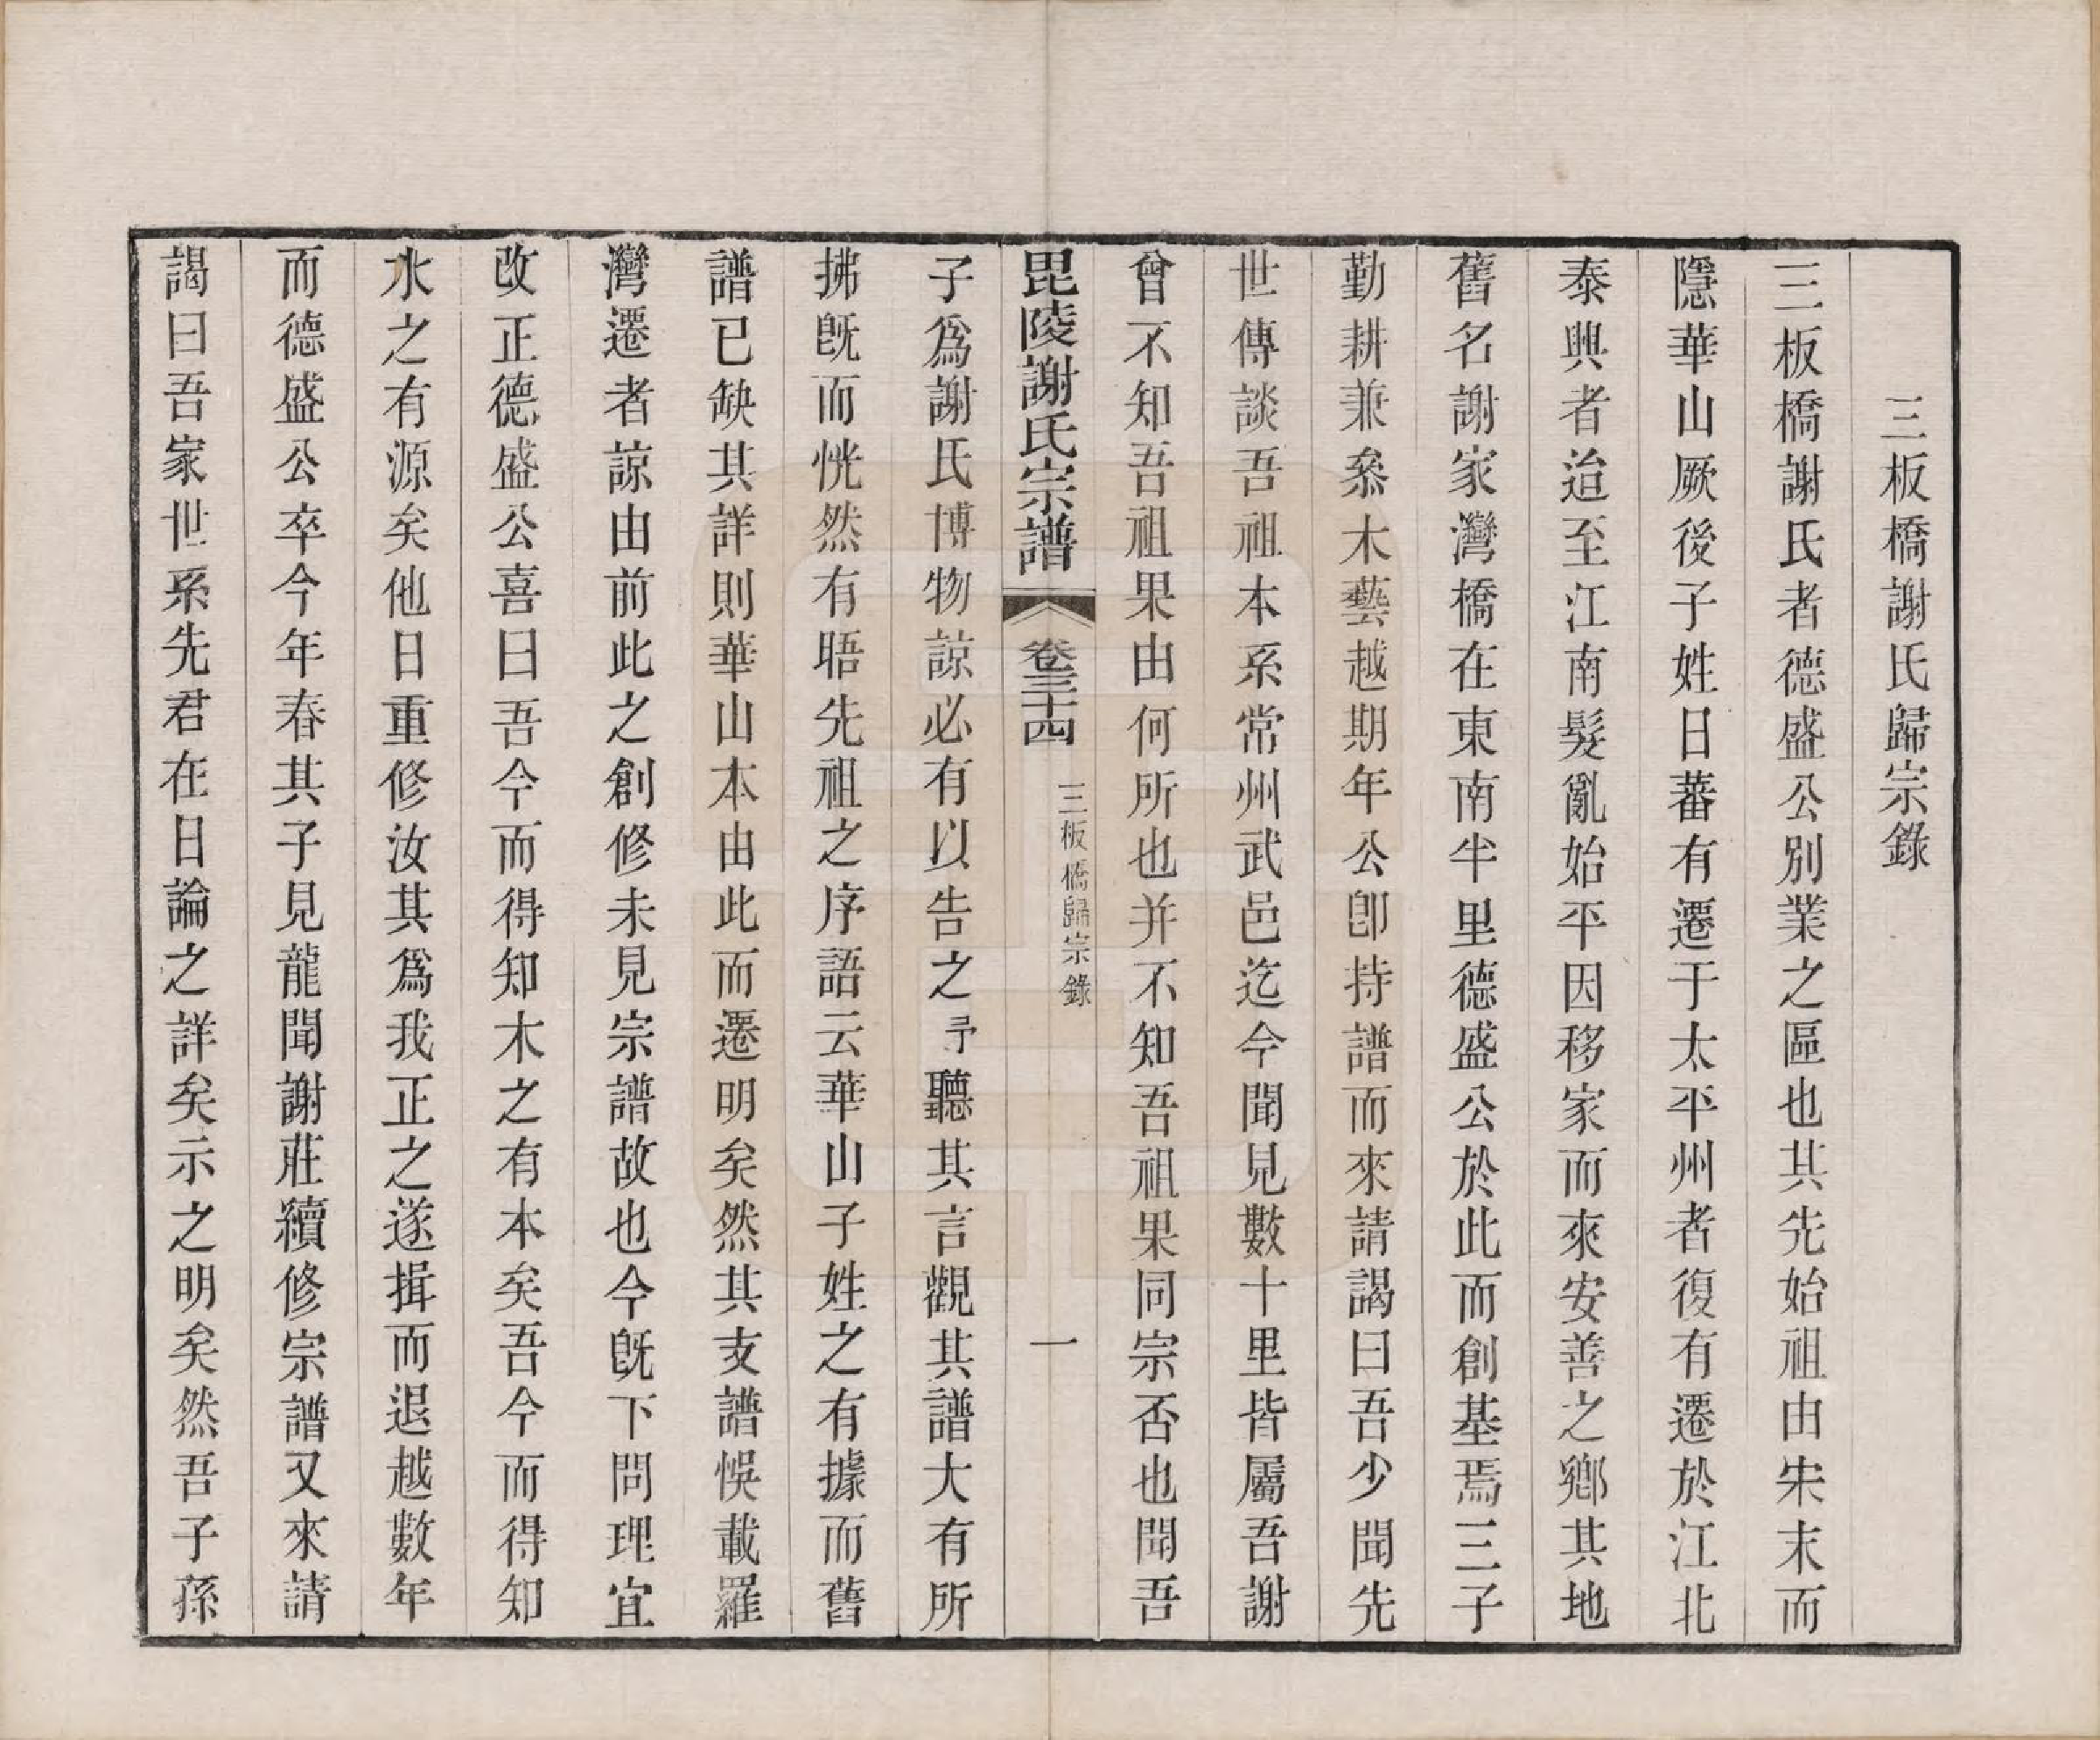 三板橋謝氏歸宗錄
三板橋謝氏者德盛公別業之區也其先始祖由宋末而
隱華山厥後子姓日蕃有遷于太平州者復有遷於江北
泰興者迨至江南髮亂始平因移家而來安善之鄉其地
舊名謝家灣橋在東南半里德盛公於此而創基焉三子
勤耕兼叅木藝越期年公卽持譜而來請謁曰吾少聞先
世傳談吾祖本系常州武邑迄今聞見數十里皆屬吾謝
曾不知吾祖果由何所也并不知吾祖果同宗否也聞吾
毘陵謝氏宗譜 卷三十四 三板橋歸宗錄 一
子爲謝氏博物諒必有以告之予聽其言觀其譜大有所
拂旣而恍然有晤先祖之序語云華山子姓之有據而舊
譜已缺其詳則華山本由此而遷明矣然其支譜悞載羅
灣遷者諒由前此之創修未見宗譜故也今旣下問理宜
改正德盛公喜曰吾今而得知木之有本矣吾今而得知
水之有源矣他日重修汝其爲我正之遂揖而退越數年
而德盛公卒今年春其子見龍聞謝莊續修宗譜又來請
謁曰吾家世系先君在日論之詳矣示之明矣然吾子孫